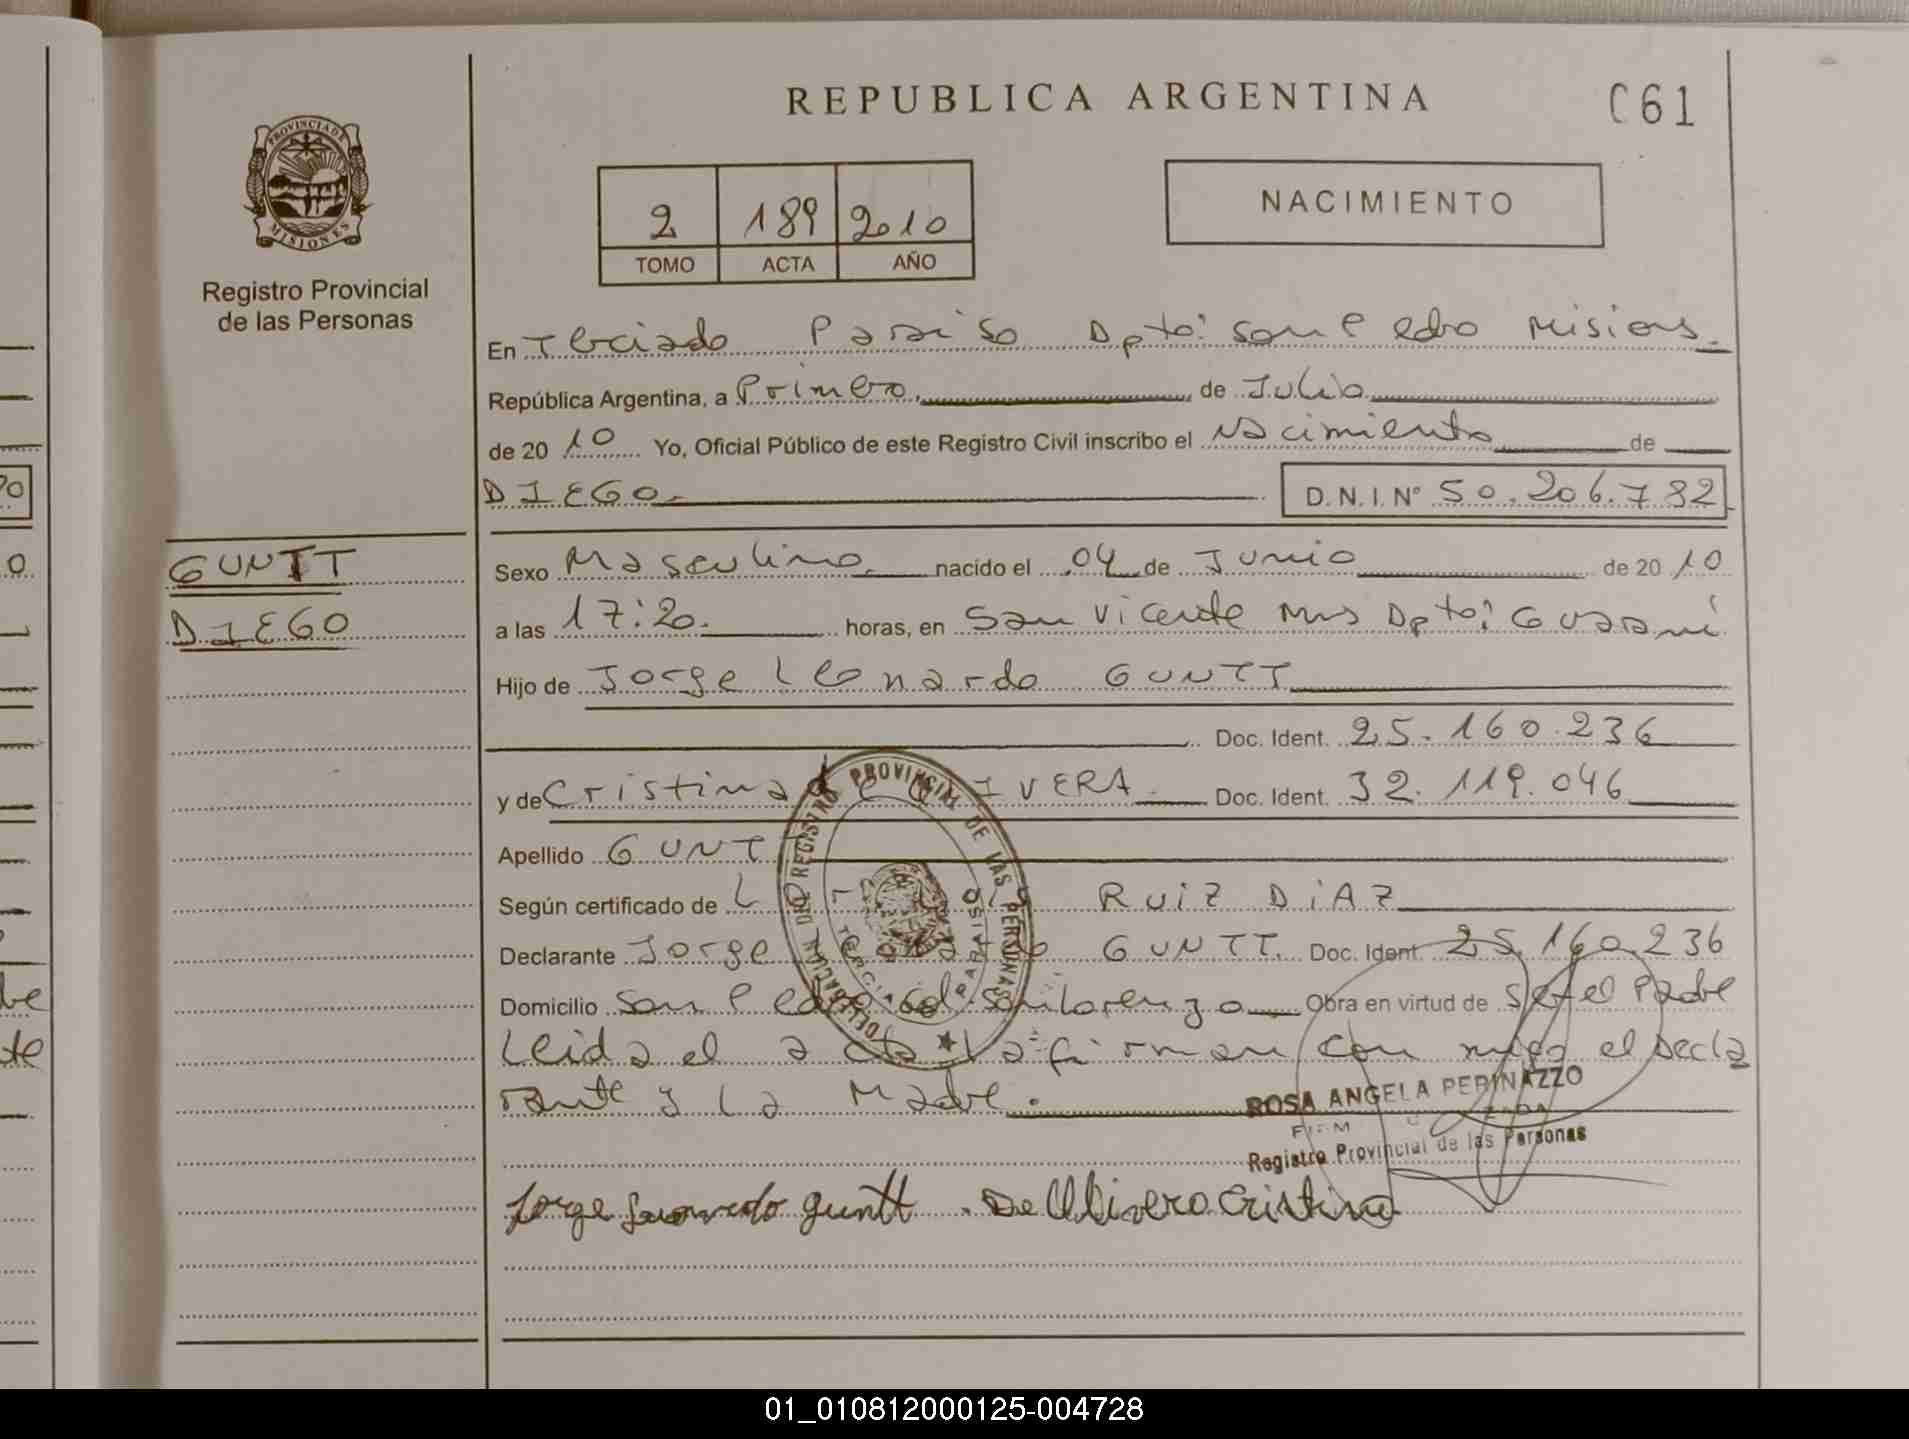 REPUBLICA ARGENTINA
C61
PROVINCIA DE
MISIONES
Registro Provincial
de las Personas
2 189 2010
TOMO ACTA AÑO
NACIMIENTO
En Terciado Paraiso Dpto: San Pedro Misiones.
República Argentina, a Primero, de Julio
de 2010 Yo, Oficial Público de este Registro Civil inscribo el Nacimiento de
DIEGO. D.N.I. N° 50.206.782
GUNTT
DIEGO
Sexo Masculino. nacido el 04 de Junio de 2010
a las 17:20. horas, en San Vicente Mns Dpto: Guarani
Hijo de Jorge Leonardo GUNTT
Doc. Ident. 25.160.236
y de Cristina IVERA. Doc. Ident. 32.119.046
Apellido GUNT
Según certificado de RUIZ DIAZ
Declarante Jorge GUNTT. Doc. Ident. 25.160.236
Domicilio San Pedro Col. San Lorenzo Obra en virtud de Ser el Padre
Leida el acta La firman con migo el Decla
rante y La Madre.
DELEGACION DEL REGISTRO PROVINCIAL DE LAS PERSONAS
TERCIADO PARAISO
ROSA ANGELA PERINAZZO
Registro Provincial de las Personas
Jorge Leonardo Guntt. De Olivera Cristina
01_010812000125-004728